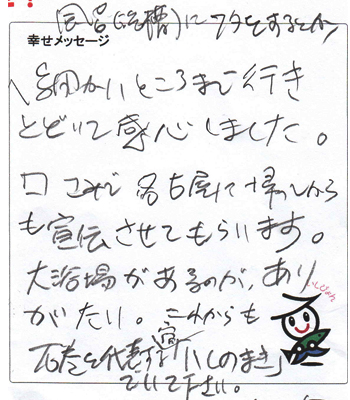 風呂(浴槽)にフタをするとか、
幸せメッセージ
細かいところまで行き
とどいて感心しました。
口コミで名古屋に帰ってから
も宣伝させてもらいます。
大浴場があるのが、あり
がたい。これからも
石巻を代表する宿「いしのまき」
でいて下さい。